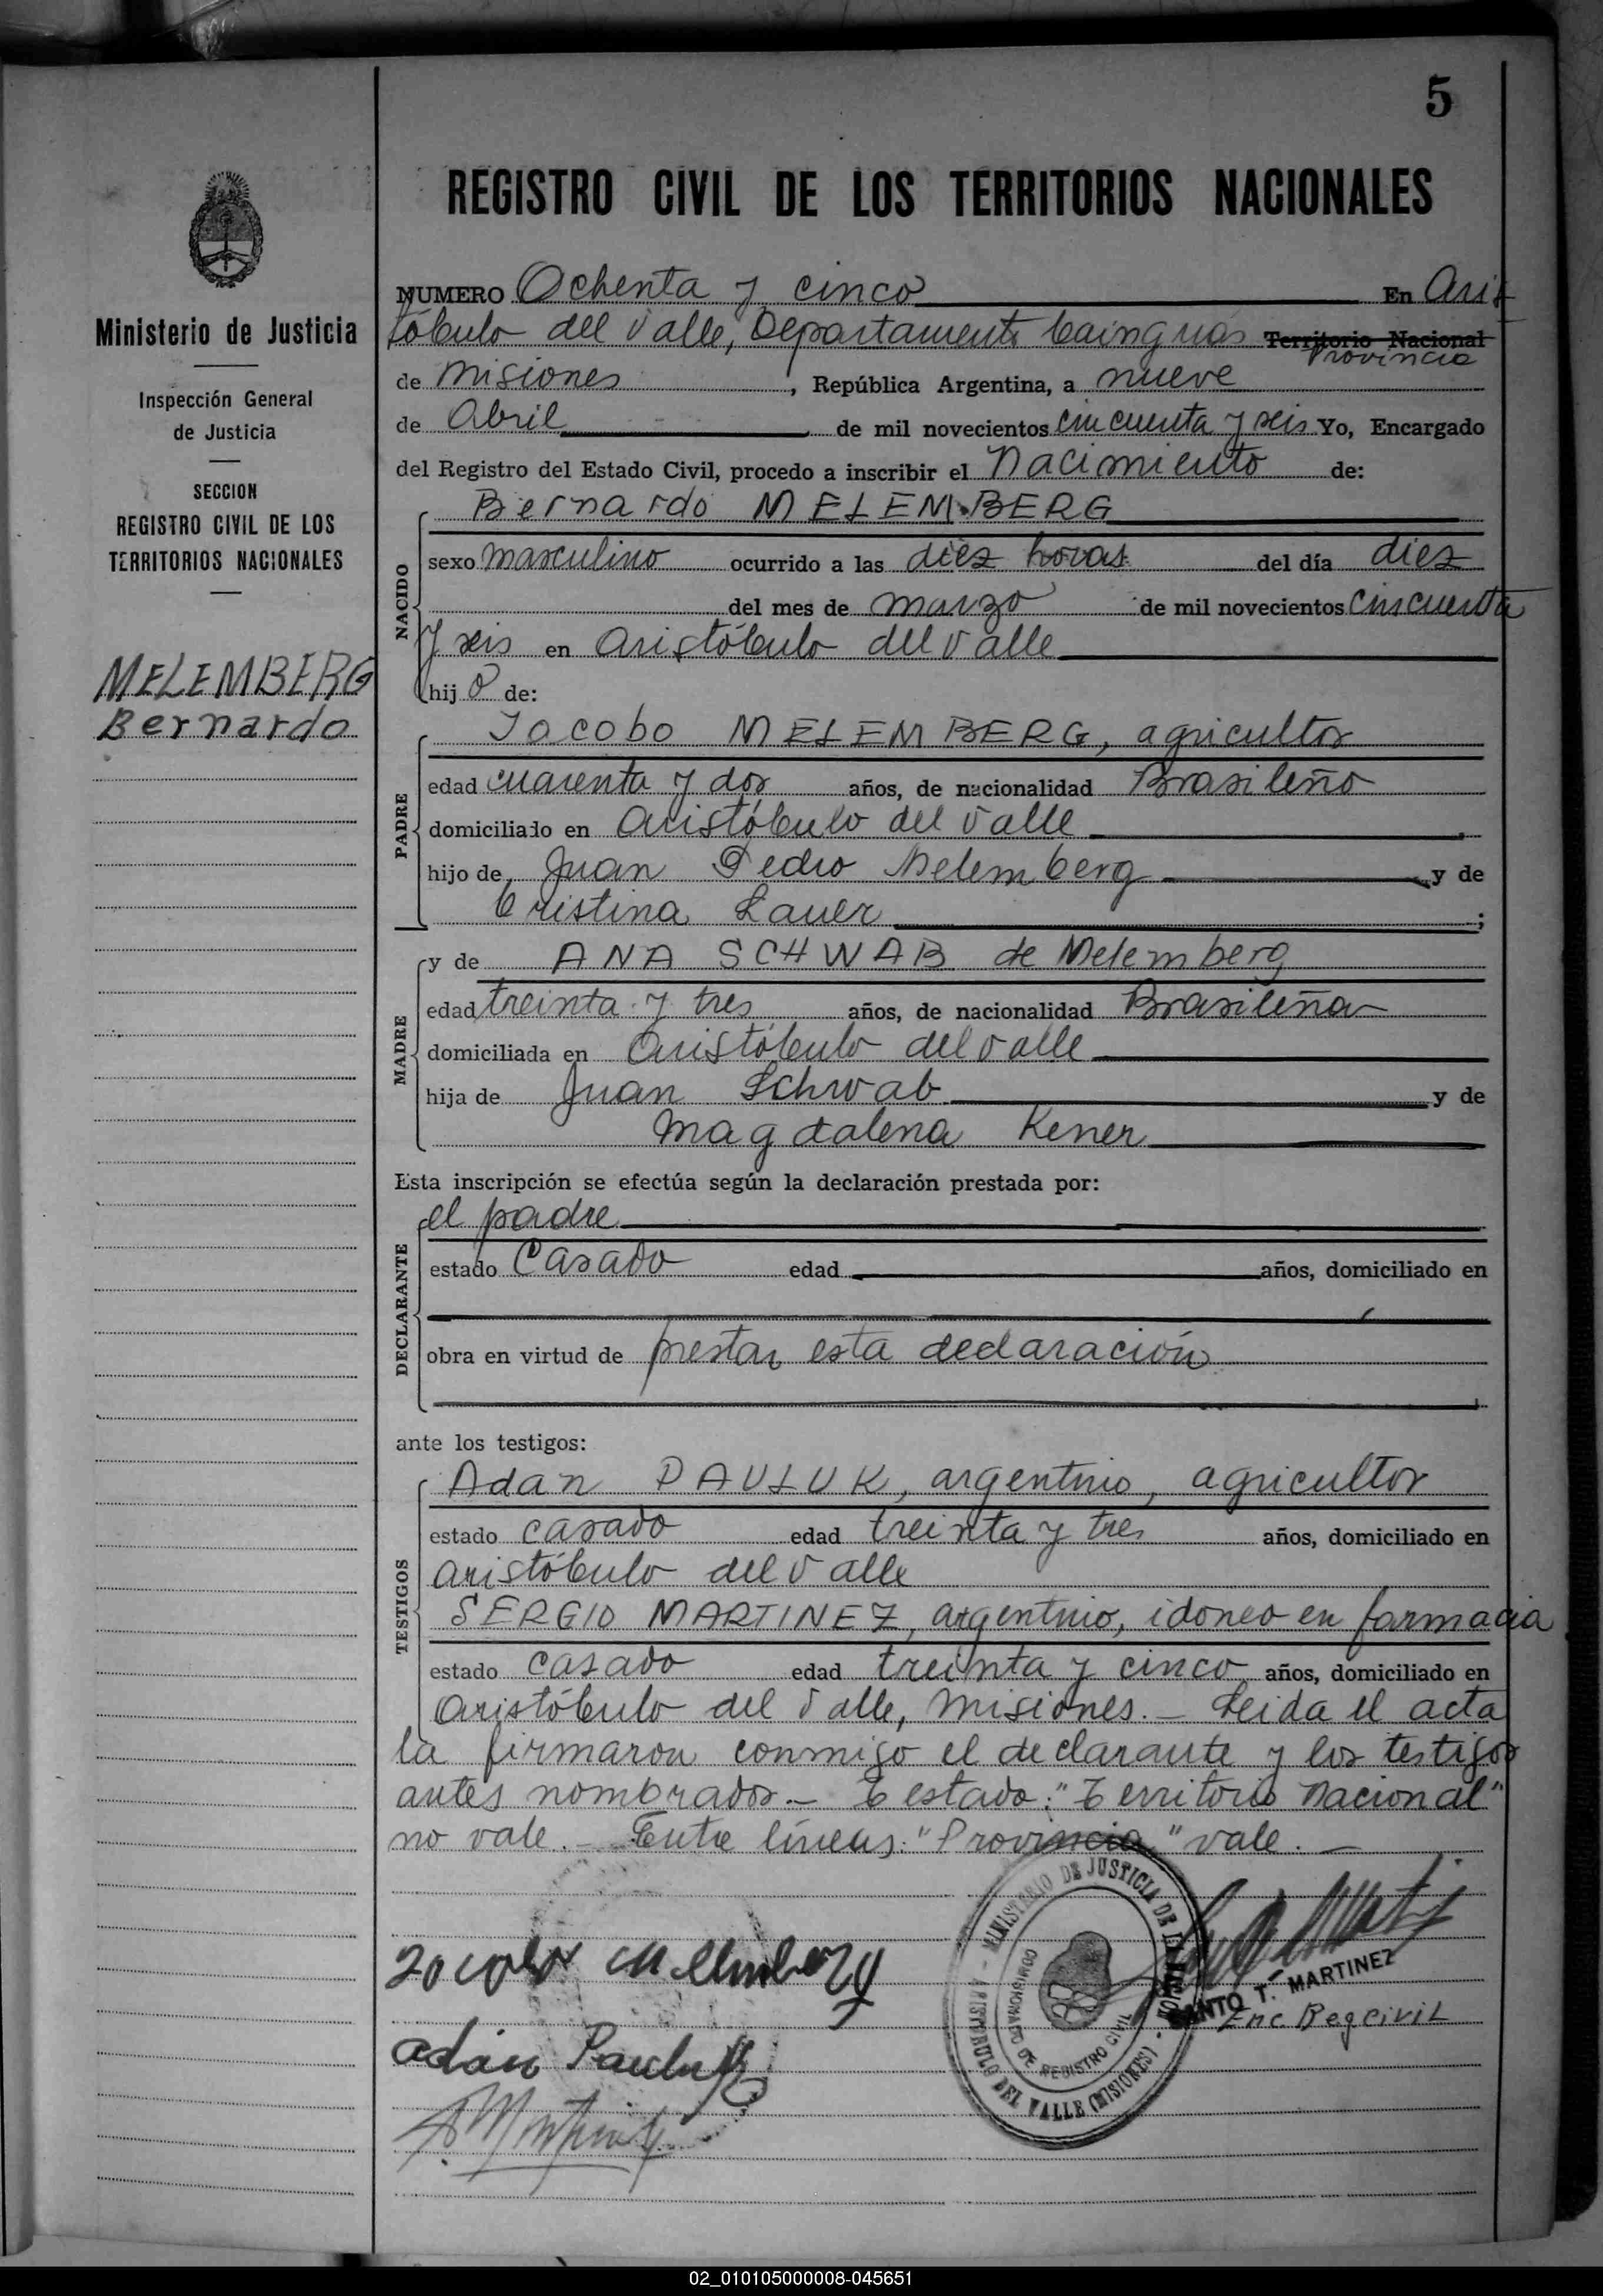 5
REGISTRO CIVIL DE LOS TERRITORIOS NACIONALES
Ministerio de Justicia
Inspección General
de Justicia
SECCION
REGISTRO CIVIL DE LOS
TERRITORIOS NACIONALES
MELEMBERG
Bernardo
NUMERO Ochenta y cinco En Aris
tóbulo del Valle, Departamento Cainguás Territorio Nacional
Provincia
de Misiones, República Argentina, a nueve
de Abril de mil novecientos cincuenta y seis Yo, Encargado
del Registro del Estado Civil, procedo a inscribir el Nacimiento de:
NACIDO
Bernardo MELEMBERG
sexo masculino ocurrido a las diez horas del día diez
del mes de marzo de mil novecientos cincuenta
y seis en Aristóbulo del Valle
hijo de:
PADRE
Jacobo MELEMBERG, agricultor
edad cuarenta y dos años, de nacionalidad Brasileño
domiciliado en Aristóbulo del Valle
hijo de Juan Pedro Melemberg y de
Cristina Lauer;
MADRE
y de ANA SCHWAB de Melemberg
edad treinta y tres años, de nacionalidad Brasileña
domiciliada en Aristóbulo del Valle
hija de Juan Schwab y de
Magdalena Kener
Esta inscripción se efectúa según la declaración prestada por:
DECLARANTE
el padre
estado Casado edad años, domiciliado en
obra en virtud de prestar esta declaración
ante los testigos:
TESTIGOS
Adan PAULUK, argentino, agricultor
estado casado edad treinta y tres años, domiciliado en
Aristóbulo del Valle
SERGIO MARTINEZ, argentino, idoneo en farmacia
estado casado edad treinta y cinco años, domiciliado en
Aristóbulo del Valle, Misiones.- Leida el acta
la firmaron conmigo el declarante y los testigos
antes nombrados.- Testado: "Territorio Nacional"
no vale.- Entre líneas: "Provincia" vale.-
MINISTERIO DE JUSTICIA DE LA NACION - ARISTOBULO DEL VALLE (MISIONES)
COMISIONADO DE REGISTRO CIVIL
SANTO T. MARTINEZ
Enc. Reg Civil
Adán Pauluk
02_010105000008-045651